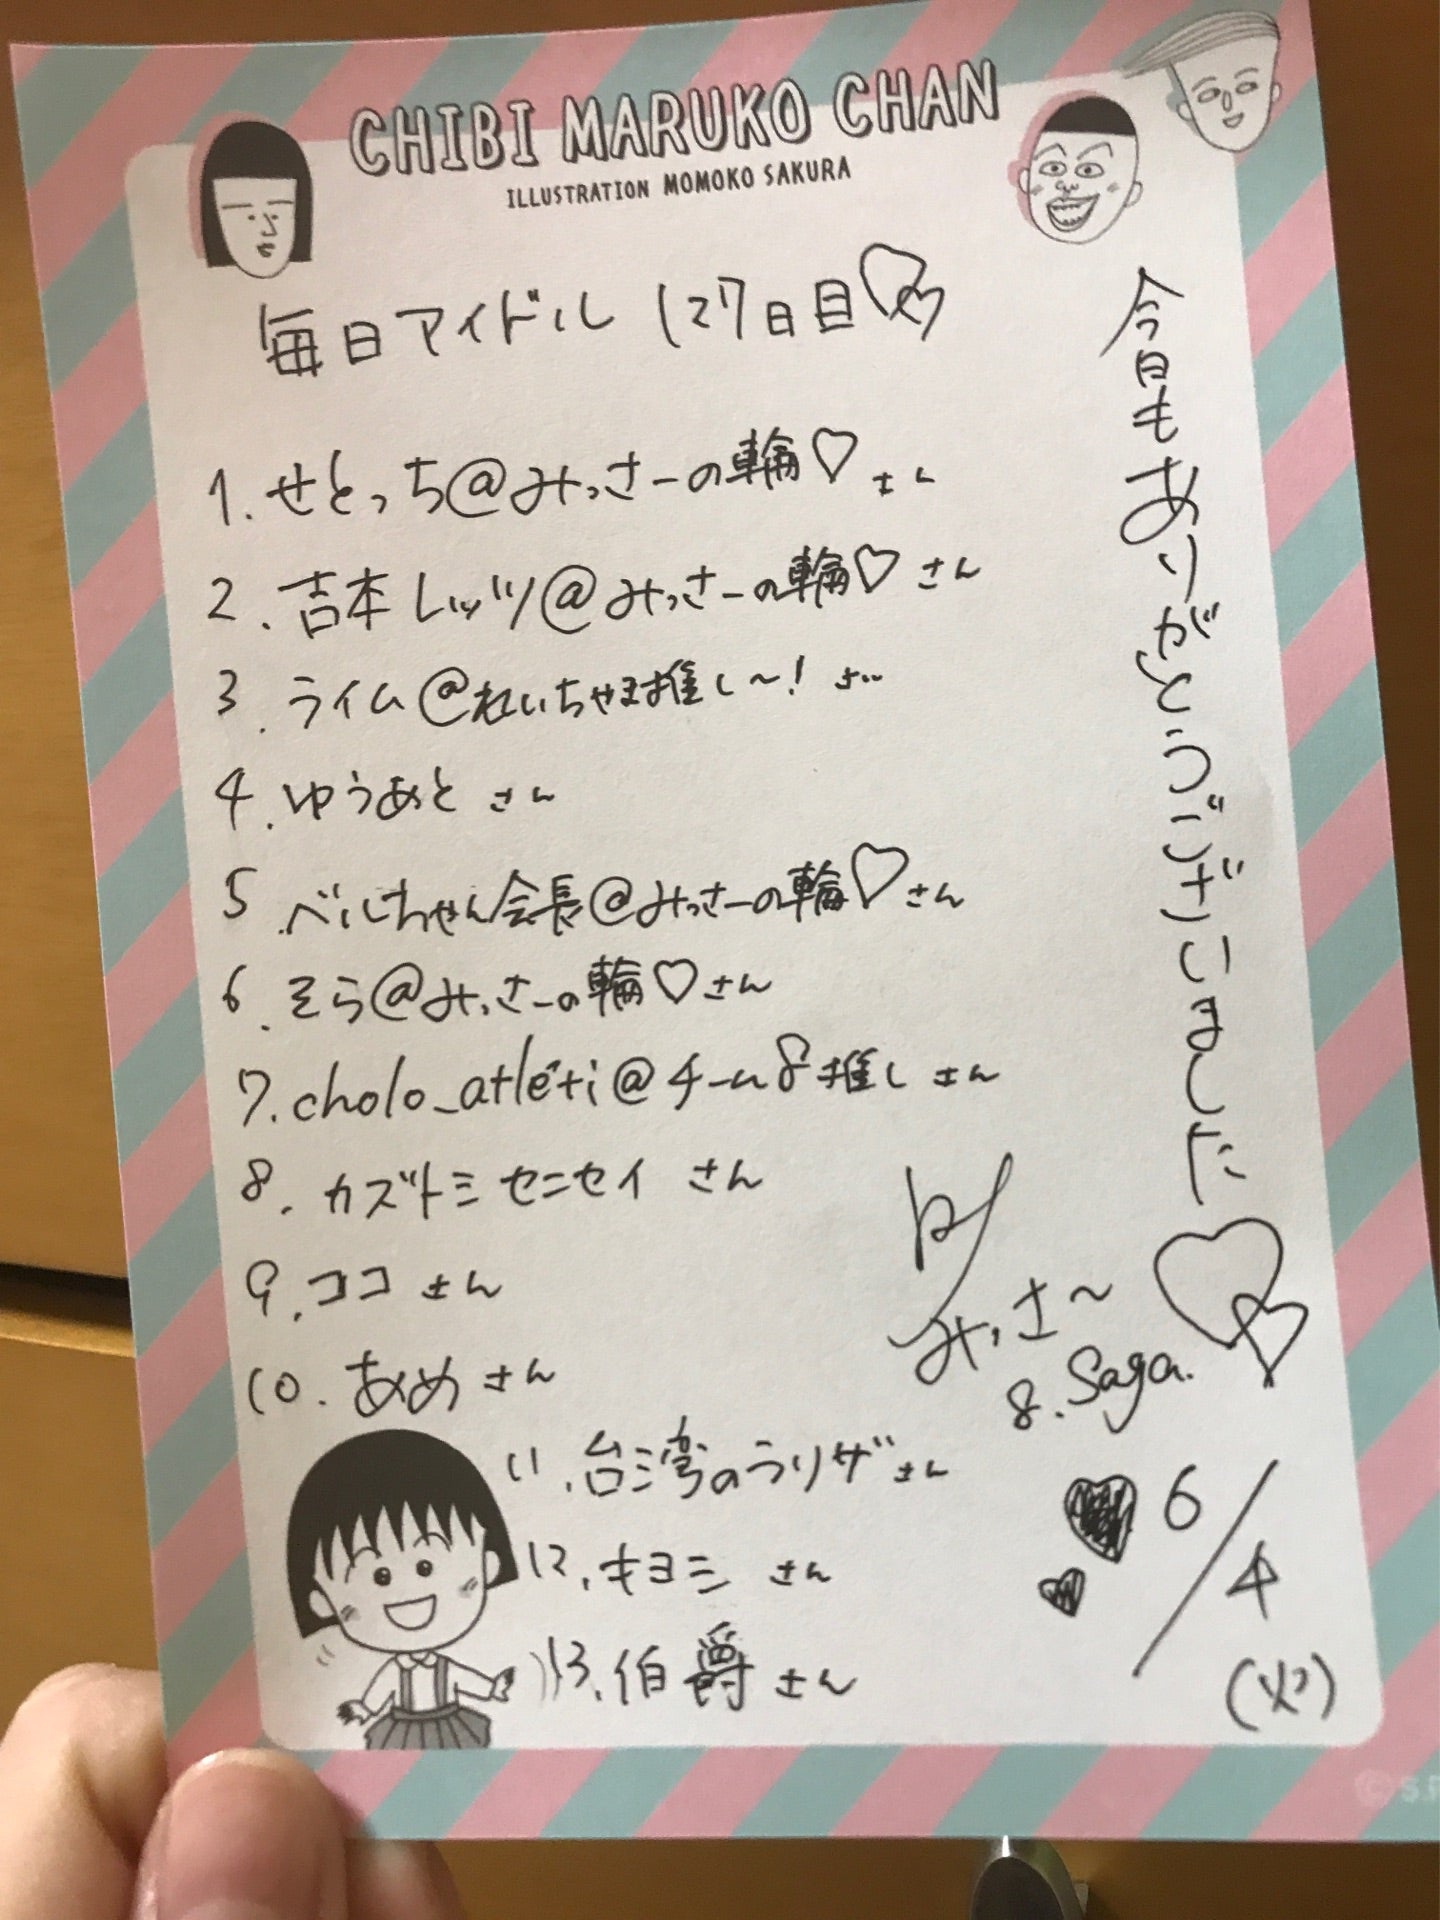 CHIBI MARUKO CHAN
ILLUSTRATION MOMOKO SAKURA
毎日アイドル 127日目
1. せとっち@みっさーの輪♡ さん
2. 吉本レッツ@みっさーの輪♡ さん
3. ライム@れいちゃま推し〜! さん
4. ゆうあと さん
5. べルちゃん会長@みっさーの輪♡さん
6. そら@みっさーの輪♡さん
7. cholo_atleti@チーム8推し さん
8. カズトミセニセイ さん
9. ココ さん
10. あめ さん
11. 台湾のうリザさん
12. キヨシ さん
13. 伯爵 さん
今日もありがとうございました
みっさ〜
8. Saga.
6/4
(火)